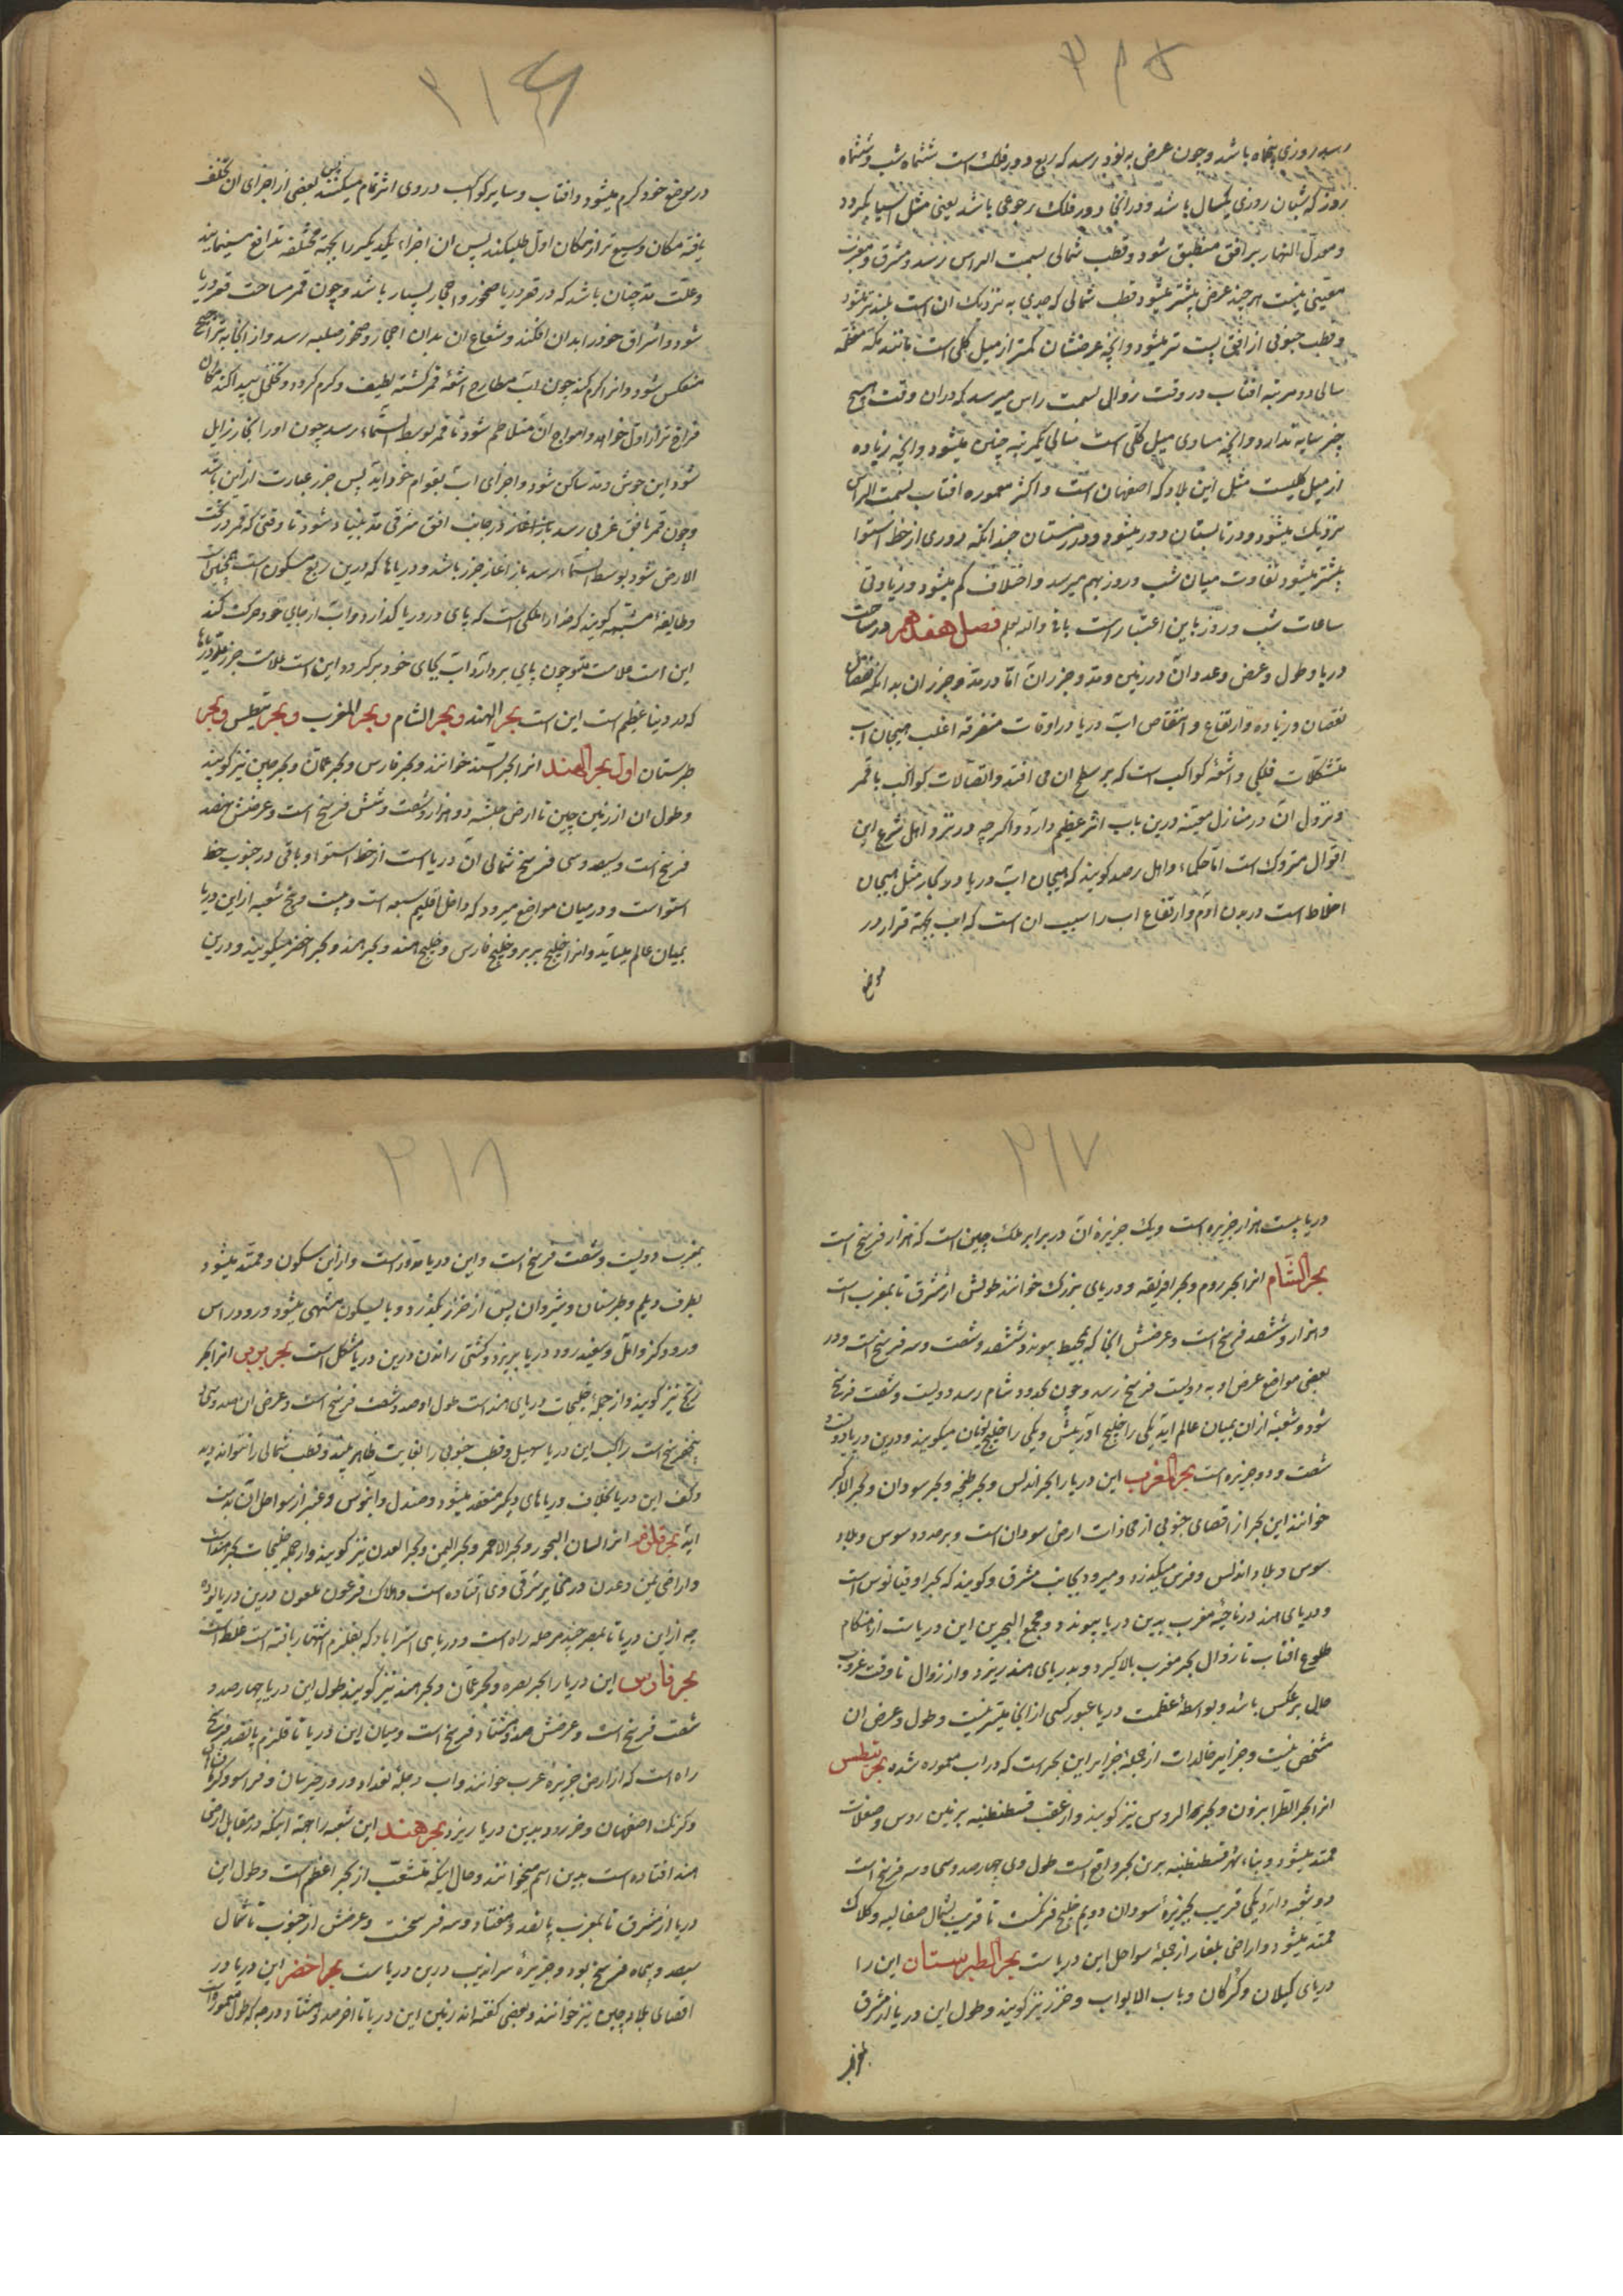 ۳۱۵
رسد روزی پنجاه باشد و چون عرض به نود رسد که ربع دور فلک است ششماه شب و ششماه
روز که شبان روزی یکسال باشد و در انجا دور فلک رحوی باشد یعنی مثل اسیا بگردد
و معدل النهار بر افق منطبق شود و قطب شمالی بسمت الراس رسد و مشرق و مغرب
معینی نیست هر چند عرض بیشتر میشود قطب شمالی که جدی به نزدیک ان است بلندتر میشود
و قطب جنوبی از افق پست تر میشود و انچه عرضشان کمتر از میل کلی است مانند مکه معظمه
سالی دو مرتبه افتاب در وقت زوال بسمت راس میرسد که در ان وقت هیچ
چیز سایه ندارد و انچه مساوی میل کلی است سالی یکمرتبه چنین میشود و انچه زیاده
از میل کلیست مثل این بلاد که اصفهان است و اکثر معموره افتاب بسمت الراس
نزدیک میشود و در تابستان دور میشود و در زمستان چندانکه دوری از خط استوا
بیشتر میشود تفاوت میان شب و روز بهم میرسد و اختلاف کم میشود و زیادتی
ساعات شب و روز باین اعتبار است فصل هفدهم در مساحت
دریا و طول و عرض و عدد ان در زمین و مد و جزر ان اما در مد و جزر ان بدانکه
نقصان و زیاده و ارتفاع و انتقاص اب دریا در اوقات متفرقه اغلب هیجان اب
متشکلات فلکی و اشعه کواکب است که بر سطح ان می افتد و اتصالات کواکب با قمر
و نزول ان در منازل معینه درین باب اثر عظیم دارد و اگرچه در نزد اهل شرع این
اقوال متروک است اما حکماء و اهل رصد گویند که هیجان اب دریا و بحار مثل هیجان
اخلاط است در بدن ادم و ارتفاع اب را سبب ان است که اب بجهة قرار در
موضع
۳۱۶
در موضع خود گرم میشود و افتاب و سایر کواکب در وی اثر تمام میکنند پس بعضی از اجزای ان تخلخل
یافته مکان وسیع تر از مکان اول طلبکند پس ان اجزاء یکدیگر را بجهة مختلفه تدافع مینمایند
و علت مد چنان باشد که در قعر دریا صخور و احجار بسیار باشد و چون قمر مسامت قعر دریا
شود و اشراق خود را بدان افکند و شعاع ان بدان احجار و صخور صلبه رسد و از انجا به تراجع
منعکس شود و انرا گرم کند چون اب مطارح اشعه قمر گشته لطیف و گرم گردد و تخلخل پیدا کند مکان
فراخ تر از اول خواهد و امواج ان متلاطم شود تا قمر بوسط السماء رسد چون او را انجا زایل
شود این جوش و مد ساکن شود و اجزای اب بقوام خود اید پس جزر عبارت از این باشد
و چون قمر بافق غربی رسد باز اغاز در جانب افق شرقی مد بنیاد شود تا وقتی که قمر در تحت
الارض شود بوسط السماء رسد باز اغاز جزر باشد و دریاها که درین ربع مسکون است
و طایفه مشبهه گویند که خدا را ملکی است که پای در دریا گذارد و اب از جای خود حرکت کند
این است علامت مد و چون پای بردارد اب بجای خود برگردد و این است علامت جزر
که در دنیا عظیم است این است بحر الهند و بحر الشام و بحر المغرب و بحر نیطس و بحر
طبرستان اول بحر الهند انرا بحر السند خوانند و بحر فارس و بحر عمان و بحر چین نیز گویند
و طول ان از زمین چین تا ارض حبشه دو هزار و شصت و شش فرسخ است و عرضش نهصد
فرسخ است و سیصد و سی فرسخ شمالی ان دریا است از خط استوا و باقی در جنوب خط
استواست و در میان مواضع میرود که داخل اقلیم سبعه است و بیست و پنج شعبه از این دریا
بمیان عالم میاید و انرا خلیج بربر و خلیج فارس و خلیج هند و بحر هند و بحر اخضر میگویند و درین
۳۱۷
دریا بیست هزار جزیره است و یک جزیره ان در برابر ملک چین است که هزار فرسخ است
بحر الشام انرا بحر روم و بحر افریقه و دریای بزرگ خوانند طولش از مشرق تا بمغرب است
و هزار و ششصد فرسخ است و عرضش انجا که بمحیط پیوندد ششصد و شصت و سه فرسخ است و در
بعضی مواضع عرض او به دویست فرسخ رسد و چون بحدود شام رسد دویست و شصت فرسخ
شود و شعبه از ان بمیان عالم اید یکی را خلیج ادریش و یکی را خلیج یونان میگویند و درین دریا دویست
شصت و دو جزیره است بحر المغرب این دریا را بحر اندلس و بحر طنجه و بحر سودان و بحر الاکبر
خوانند این بحر از اقصای جنوبی از محاذات ارض سودان است و بر حدود سوس و بلاد
سوس و بلاد اندلس و فرس میگذرد و میرود بجانب مشرق و گویند که بحر اوقیانوس است
و دریای هند در ناحیه مغرب بدین دریا پیوندد و مجمع البحرین این دریاست از هنگام
طلوع افتاب تا زوال بحر مغرب بالا گیرد و بدریای هند ریزد و از زوال تا وقت غروب
حال برعکس باشد و بواسطه عظمت دریا عبور کسی از انجا میسر نیست و طول و عرض ان
مشخص نیست و جزایر خالدات از جمله جزایر این بحر است که در اب معموره شده بحر نیطس
انرا بحر الطرابزون و بحر الروس نیز گویند و از عقب قسطنطنیه بر زمین روس و صقلاب
ممتد میشود و بناء شهر قسطنطنیه برین بحر واقع است طول وی چهارصد و سی و سه فرسخ است
دو شعبه دارد یکی قریب بجزیره سودان دویم خلیج فرنگست تا قریب بشمال صقالبه و کلاک
ممتد میشود و اراضی بلغار از جمله سواحل این دریاست بحر الطبرستان این را
دریای گیلان و گرگان و باب الابواب و خزر نیز گویند و طول این دریا از مشرق
۳۱۸
بمغرب دویست و شصت فرسخ است و این دریا مدور است و از این سکون و ممتد میشود
بطرف دیلم و طبرستان و شیروان پس از خزر بگذرد و بابسکون منتهی میشود و رود ارس
و رود کر و اتل و سفید رود در دریا بریزد و کشتی راندن درین دریا مشکل است بحر بربر انرا بحر
زنج نیز گویند و از جمله خلیجات دریای هند است طول او صد و شصت فرسخ است و عرض ان صد و سی و
پنج فرسخ است راکب این دریا سهیل و قطب جنوبی را بغایت ظاهر بیند و قطب شمالی را نتواند دید
و کف این دریا بخلاف دریاهای دیگر منعقد میشود و صندل و ابنوس و عنبر از سواحل ان بدست
اید بحر قلزم انرا لسان البحور و بحر الاحمر و بحر الیمن و بحر العدن نیز گویند و از جمله خلیجات بحر هند است
و اراضی یمن و عدن در مغایر شرقی وی افتاده است و هلاک فرعون ملعون درین دریا بوده
چه از این دریا تا بمصر چند مرحله راه است و دریای استراباد که بقلزم اشتهار یافته است غلط است
بحر فارس این دریا را بحر بصره و بحر عمان و بحر هند نیز گویند طول این دریا چهارصد و
شصت فرسخ است و عرضش صد و هشتاد فرسخ است و میان این دریا تا قلزم پانصد فرسخ
راه است که از ارض جزیره عرب خوانند و اب دجله بغداد و رود
و کرنک اصفهان و خررود بدین دریا ریزد بحر هند این شعبه را جهة اینکه در مقابل ارض
هند افتاده است بدین اسم میخوانند و حال اینکه متشعب از بحر اعظم است و طول این
دریا از مشرق تا بمغرب پانصد و هفتاد و سه فرسخست و عرضش از جنوب تا شمال
سیصد و پنجاه فرسخ بود و جزیره سراندیب درین دریاست بحر اخضر این دریا در
اقصای بلاد چین نیز خوانند و بعضی گفته اند زمین این دریا تا اخر صد و هشتاد درجه که طول معمور است